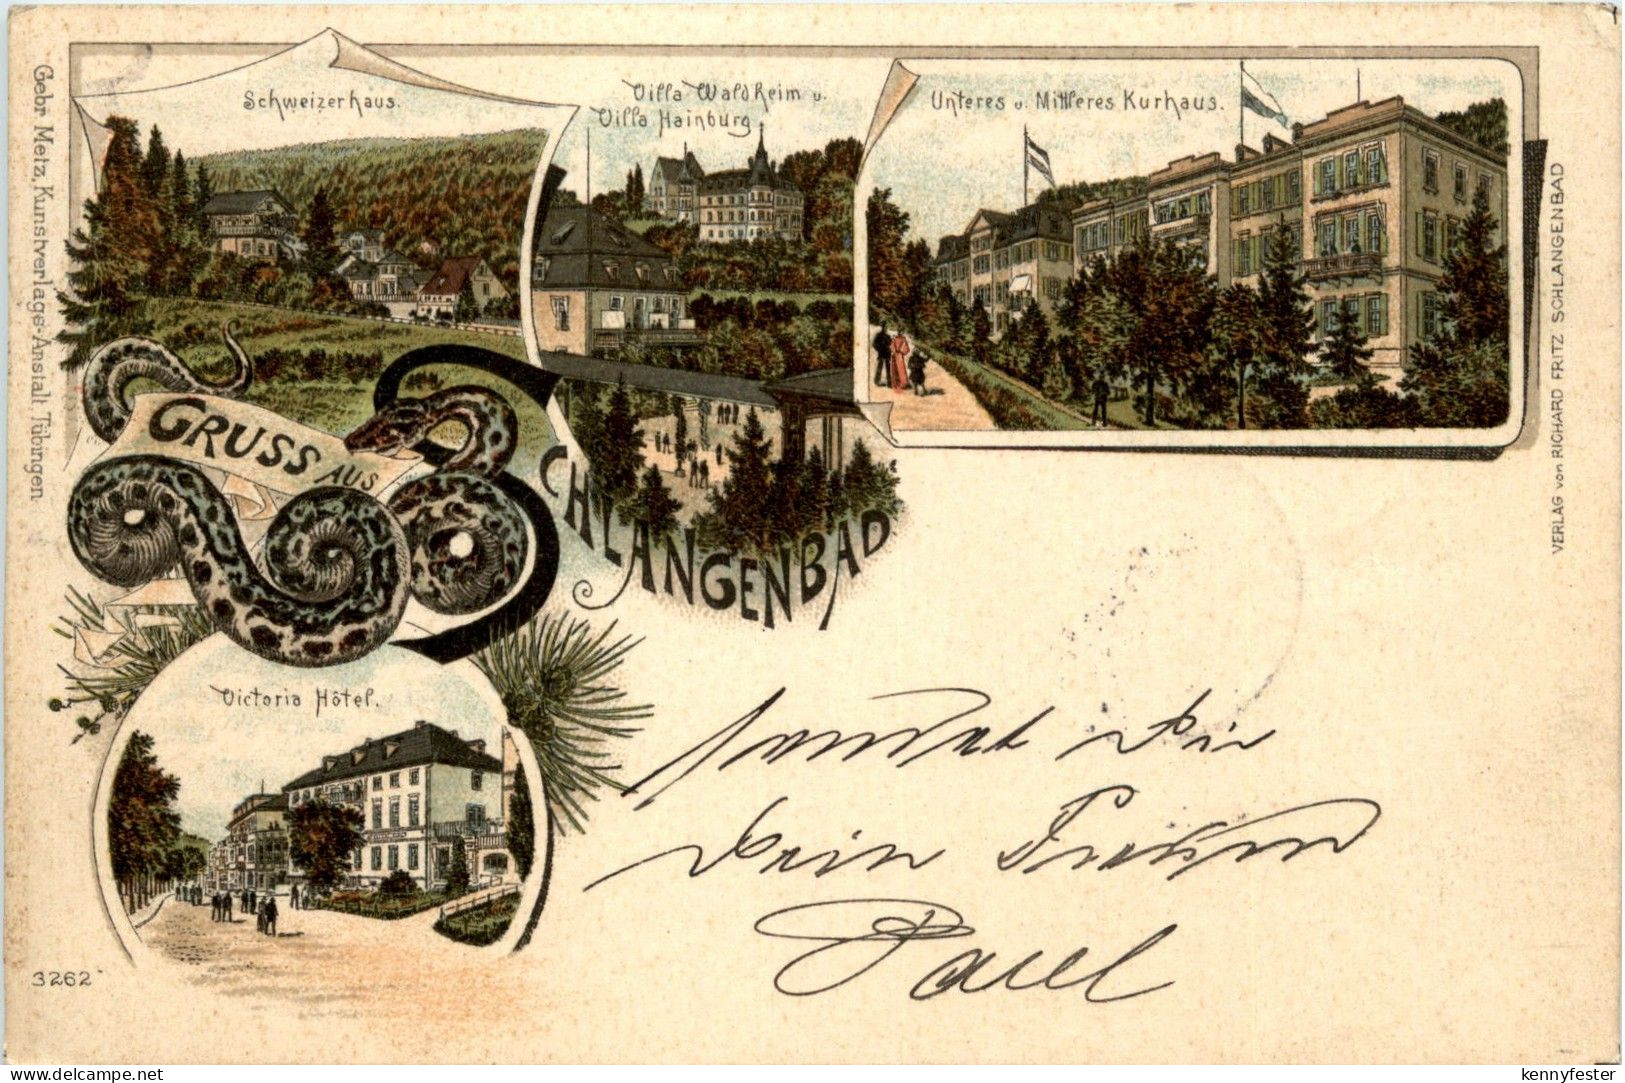 Schweizerhaus.
Villa Waldheim u.
Villa Hainburg
Unteres u. Mittleres Kurhaus.
Gebr. Metz, Kunstverlags-Anstalt, Tübingen.
VERLAG von RICHARD FRITZ SCHLANGENBAD
GRUSS AUS
SCHLANGENBAD
Victoria Hôtel.
sendet Dir
Dein
Paul
3262
delcampe.net
kennyfester